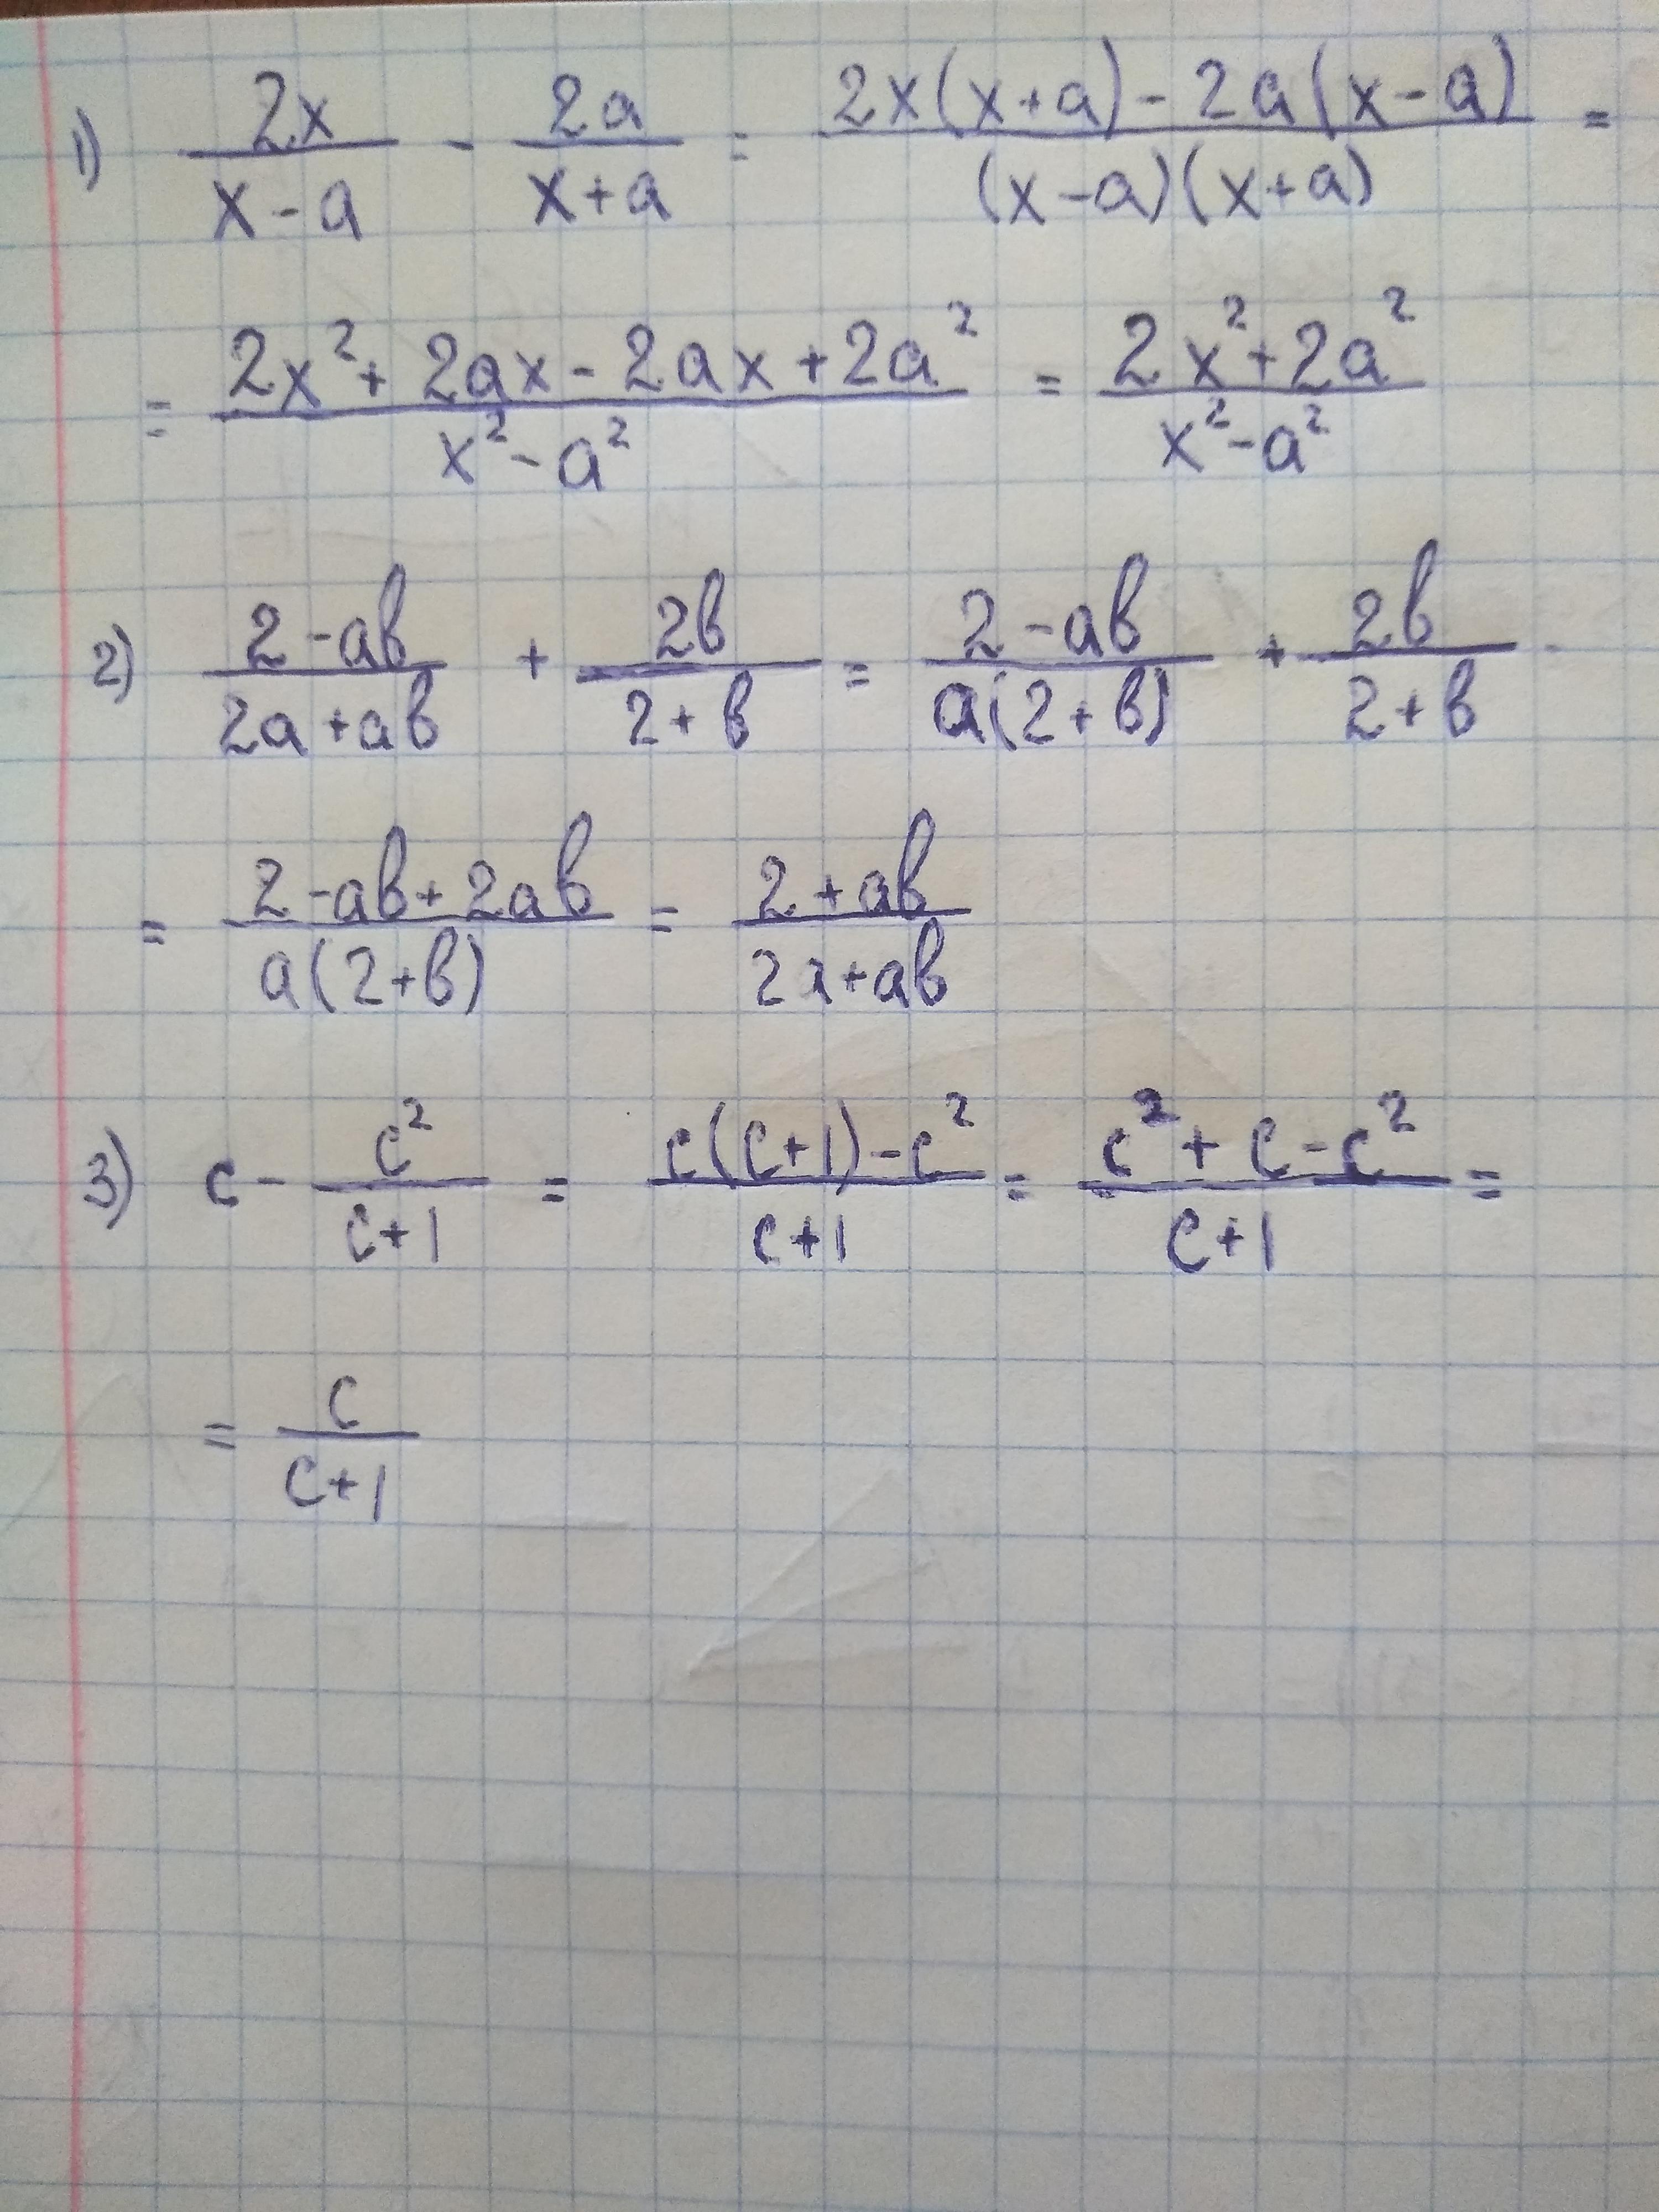 1) \frac{2x}{x-a} - \frac{2a}{x+a} = \frac{2x(x+a)-2a(x-a)}{(x-a)(x+a)} =
= \frac{2x^2+2ax-2ax+2a^2}{x^2-a^2} = \frac{2x^2+2a^2}{x^2-a^2}
2) \frac{2-ab}{2a+ab} + \frac{2b}{2+b} = \frac{2-ab}{a(2+b)} + \frac{2b}{2+b} -
= \frac{2-ab+2ab}{a(2+b)} = \frac{2+ab}{2a+ab}
3) c - \frac{c^2}{c+1} = \frac{c(c+1)-c^2}{c+1} = \frac{c^2+c-c^2}{c+1} =
= \frac{c}{c+1}